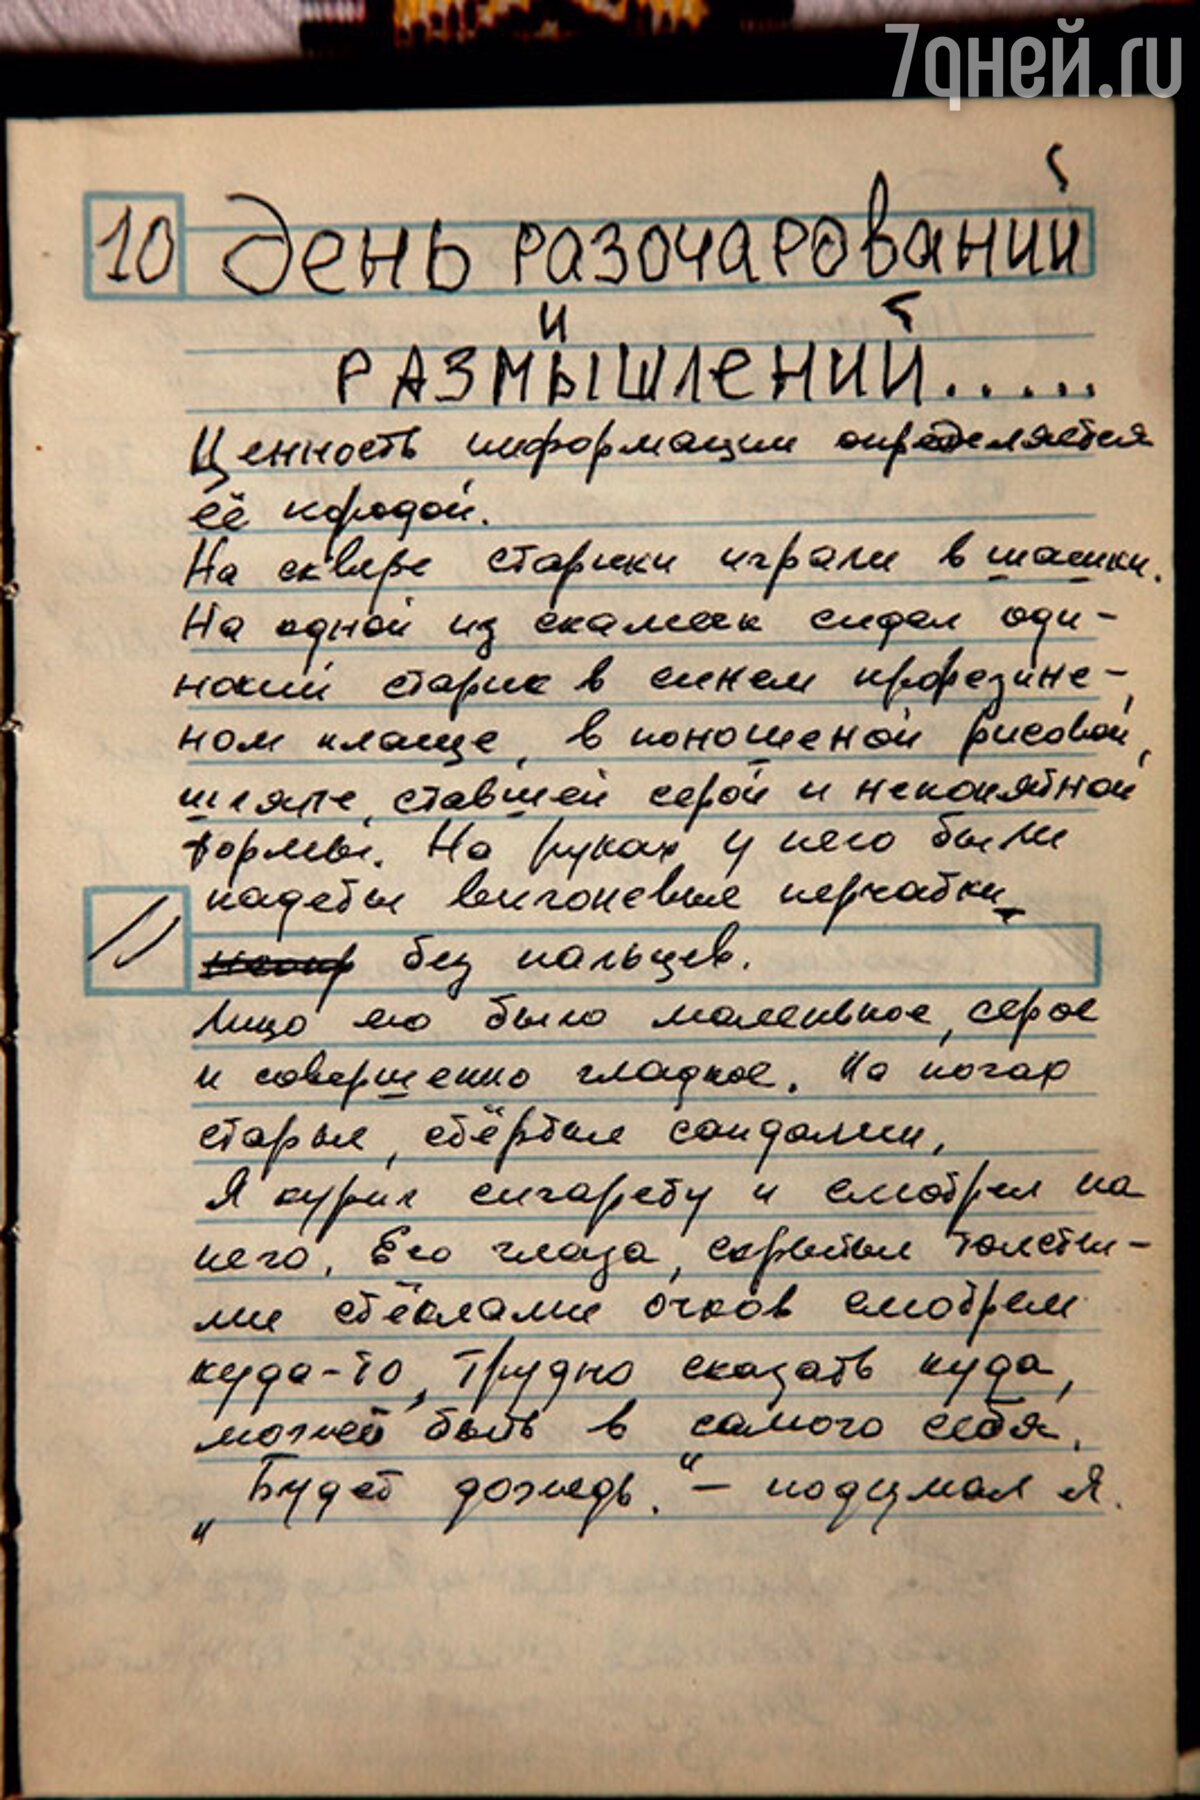 7дней.ru
10 День разочарований
и
размышлений.....
Ценность информации определяется
её
На сквере старики играли в шашки.
На одной из скамеек сидел оди-
нокий старик в синем прорезине-
ном плаще, в поношеной рисовой
шляпе, ставшей серой и непонятной
формы. На руках у него были
надеты вигоневые перчатки
11 без пальцев.
Лицо его было маленькое, серое
и совершенно гладкое. На ногах
старые, стёртые сандалии,
Я курил сигарету и смотрел на
него. Его глаза, скрытые толсты-
ми стёклами очков смотрели
куда-то, трудно сказать куда,
может быть в самого себя.
„Будет дождь." – подумал я.